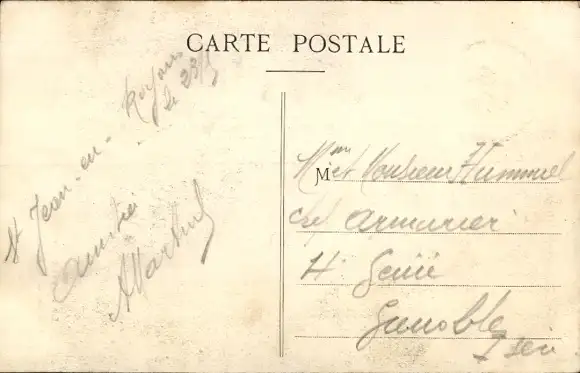 CARTE POSTALE
St Jean-en-Royans
le 23/5
Amitiés
A Martul
Mme et Monsieur Hummel
chef armurier
4e Génie
Grenoble
Isère